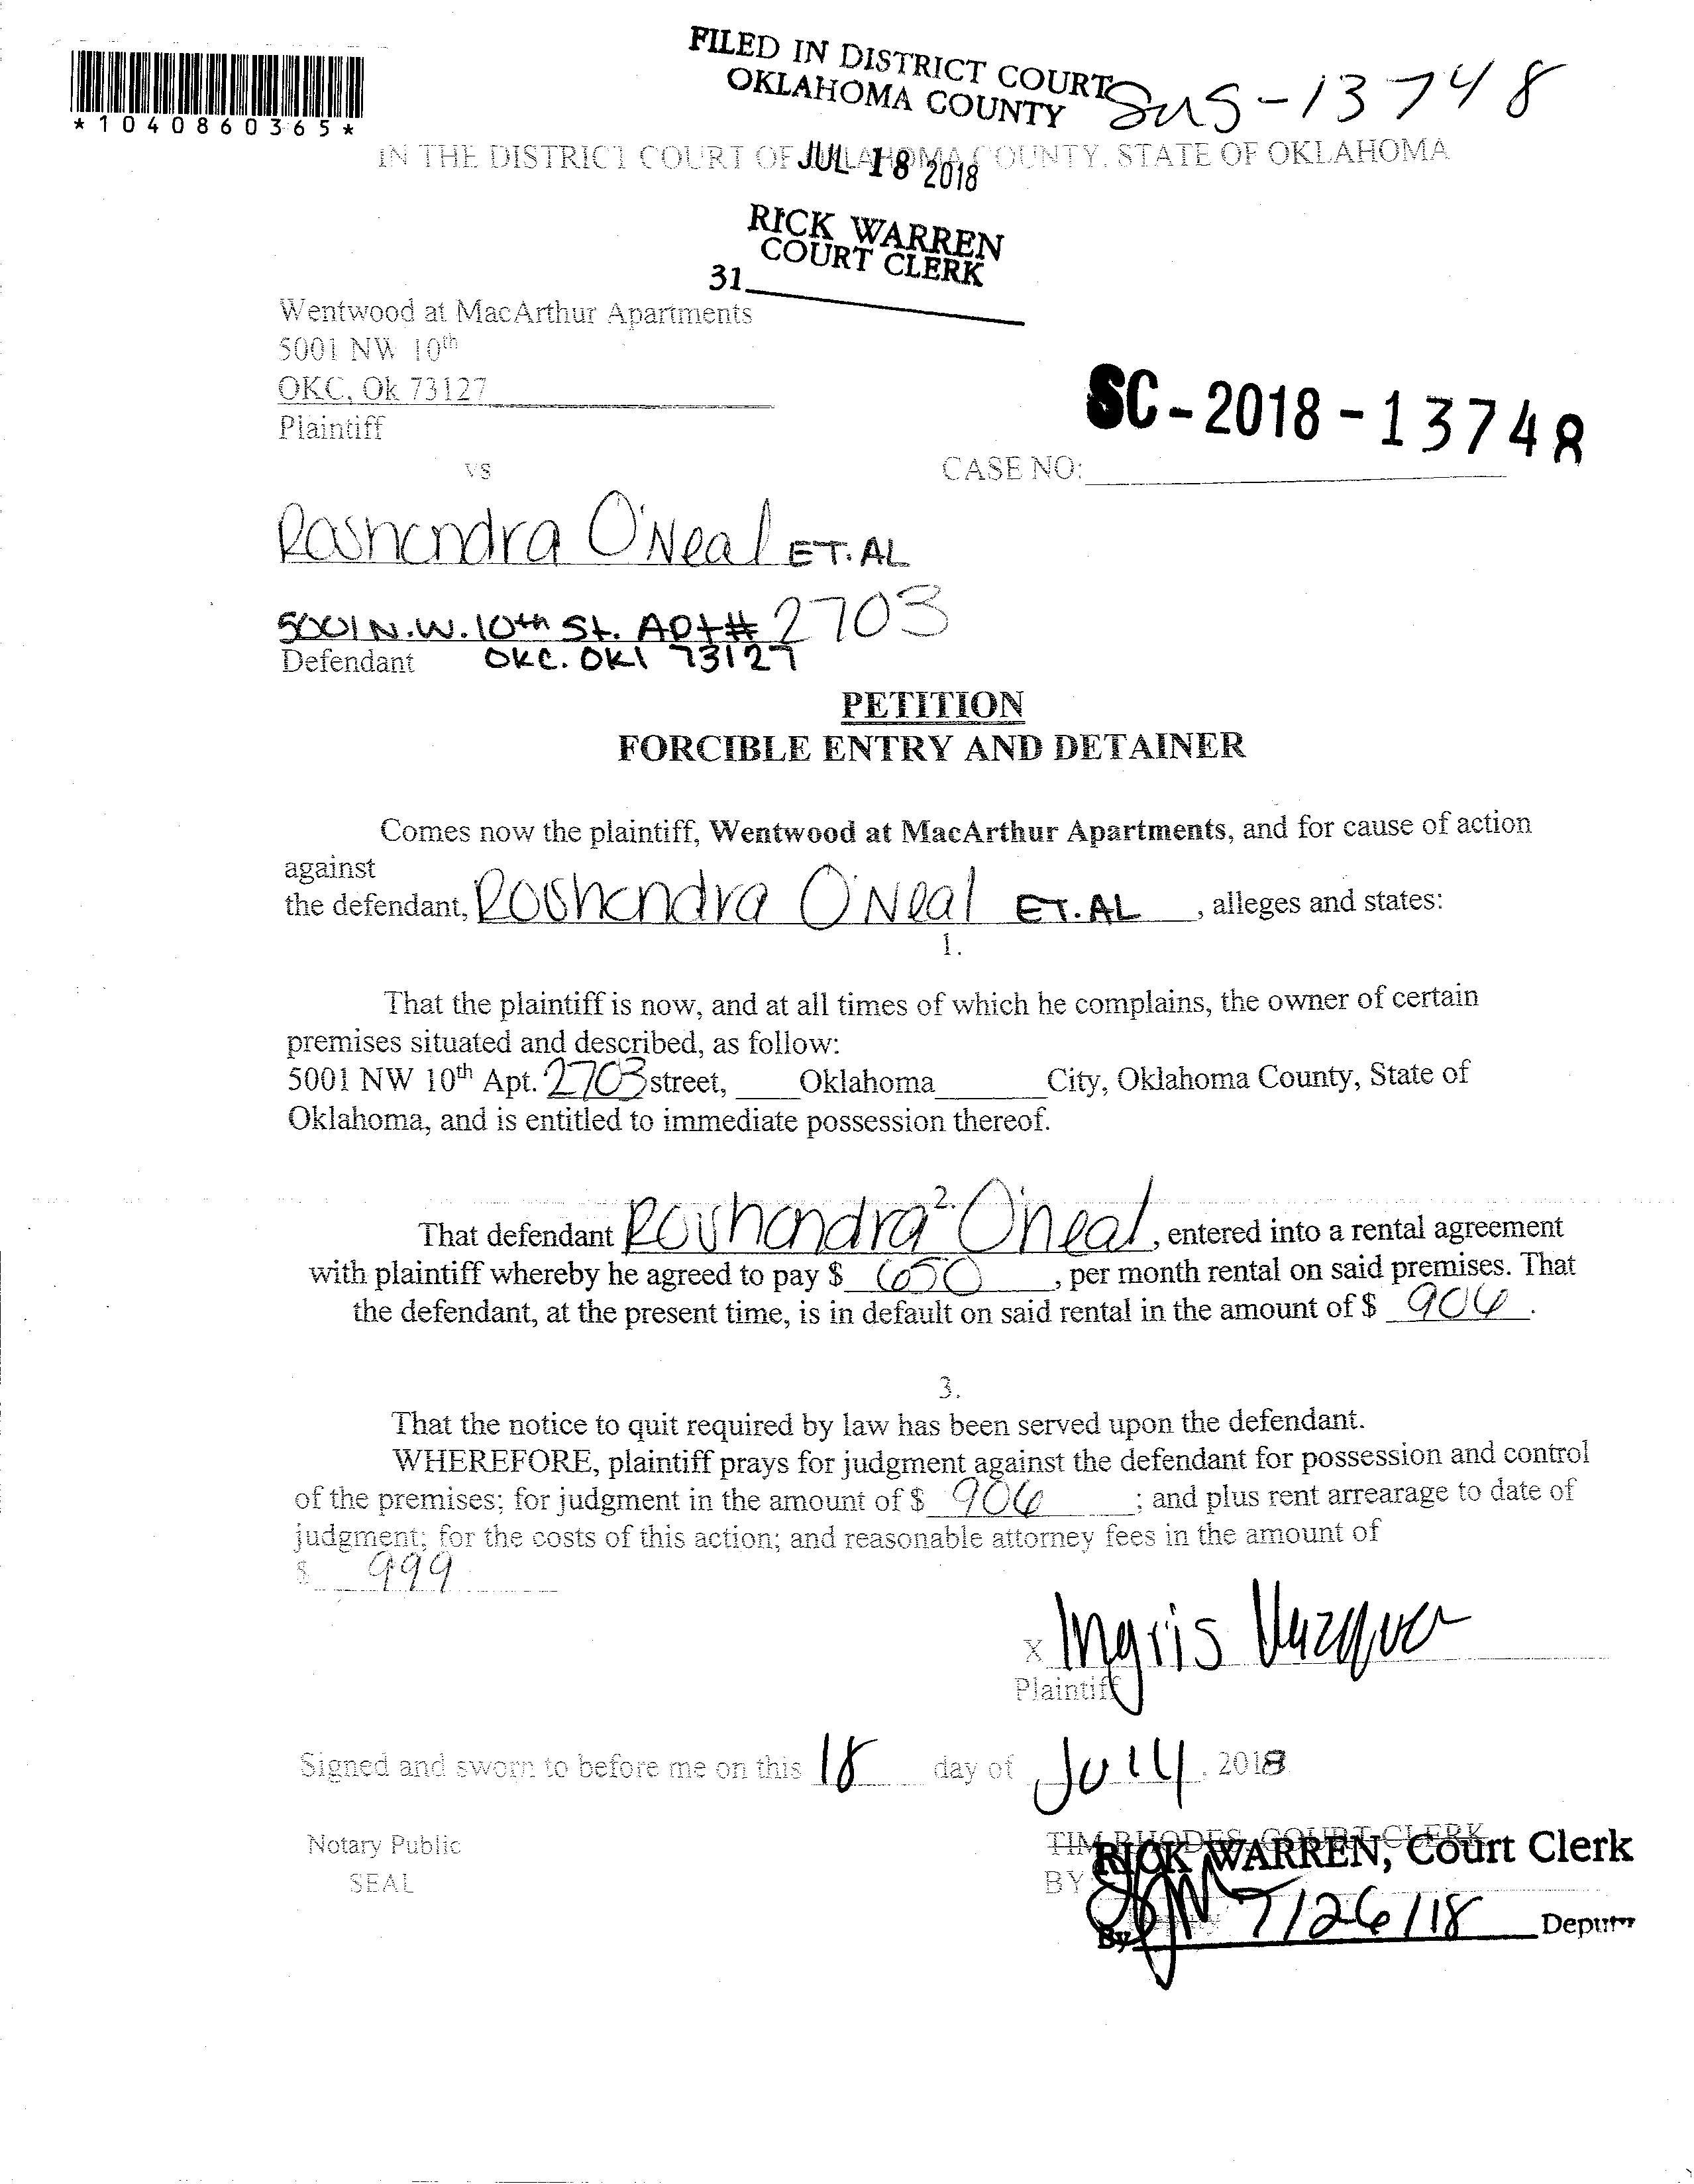 FILED IN DISTRICT COURT
OKLAHOMA COUNTY
-13748
*1040860365*
IN THE DISTRICT COURT OF OKLAHOMA COUNTY, STATE OF OKLAHOMA
JUL 18 2018
RICK WARREN
COURT CLERK
31
Wentwood at MacArthur Apartments
5001 NW 10th
OKC, Ok 73127
Plaintiff
SC-2018-13748
vs
CASE NO:
Rashondra O'Neal ET.AL
5001 N.W. 10th St. Apt# 2703
Defendant OKC. OKl 73127
PETITION
FORCIBLE ENTRY AND DETAINER
Comes now the plaintiff, Wentwood at MacArthur Apartments, and for cause of action
against
the defendant, Roshondra O'Neal ET.AL , alleges and states:
1.
That the plaintiff is now, and at all times of which he complains, the owner of certain
premises situated and described, as follow:
5001 NW 10th Apt. 2703 street, Oklahoma City, Oklahoma County, State of
Oklahoma, and is entitled to immediate possession thereof.
2.
That defendant Roshondra O'neal, entered into a rental agreement
with plaintiff whereby he agreed to pay $ 650 , per month rental on said premises. That
the defendant, at the present time, is in default on said rental in the amount of $ 906 .
3.
That the notice to quit required by law has been served upon the defendant.
WHEREFORE, plaintiff prays for judgment against the defendant for possession and control
of the premises; for judgment in the amount of $ 906 ; and plus rent arrearage to date of
judgment; for the costs of this action; and reasonable attorney fees in the amount of
$ 999
x Ingris Vazquez
Plaintiff
Signed and sworn to before me on this 18 day of July, 2018
Notary Public
SEAL
TIM RHODES, COURT CLERK
RICK WARREN, Court Clerk
BY
By 7/26/18 Deputy